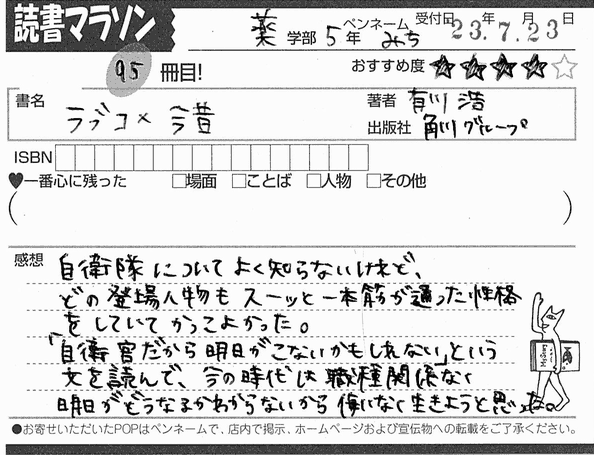 読書マラソン
薬 学部 5年 ペンネーム みち 受付日 23年.7月.23日
95 冊目!
おすすめ度 ★★★★☆
書名 ラブコメ今昔
著者 有川 浩
出版社 角川グループ
ISBN
♥一番心に残った □場面 □ことば □人物 □その他
( )
感想
自衛隊についてよく知らないけれど、
どの登場人物もスーッと一本筋が通った性格
をしていてかっこよかった。
「自衛官だから明日がこないかもしれない」という
文を読んで、今の時代は職種関係なく
明日がどうなるかわからないから悔いなく生きようと思った。
●お寄せいただいたPOPはペンネームで、店内で掲示、ホームページおよび宣伝物への転載をご了承ください。